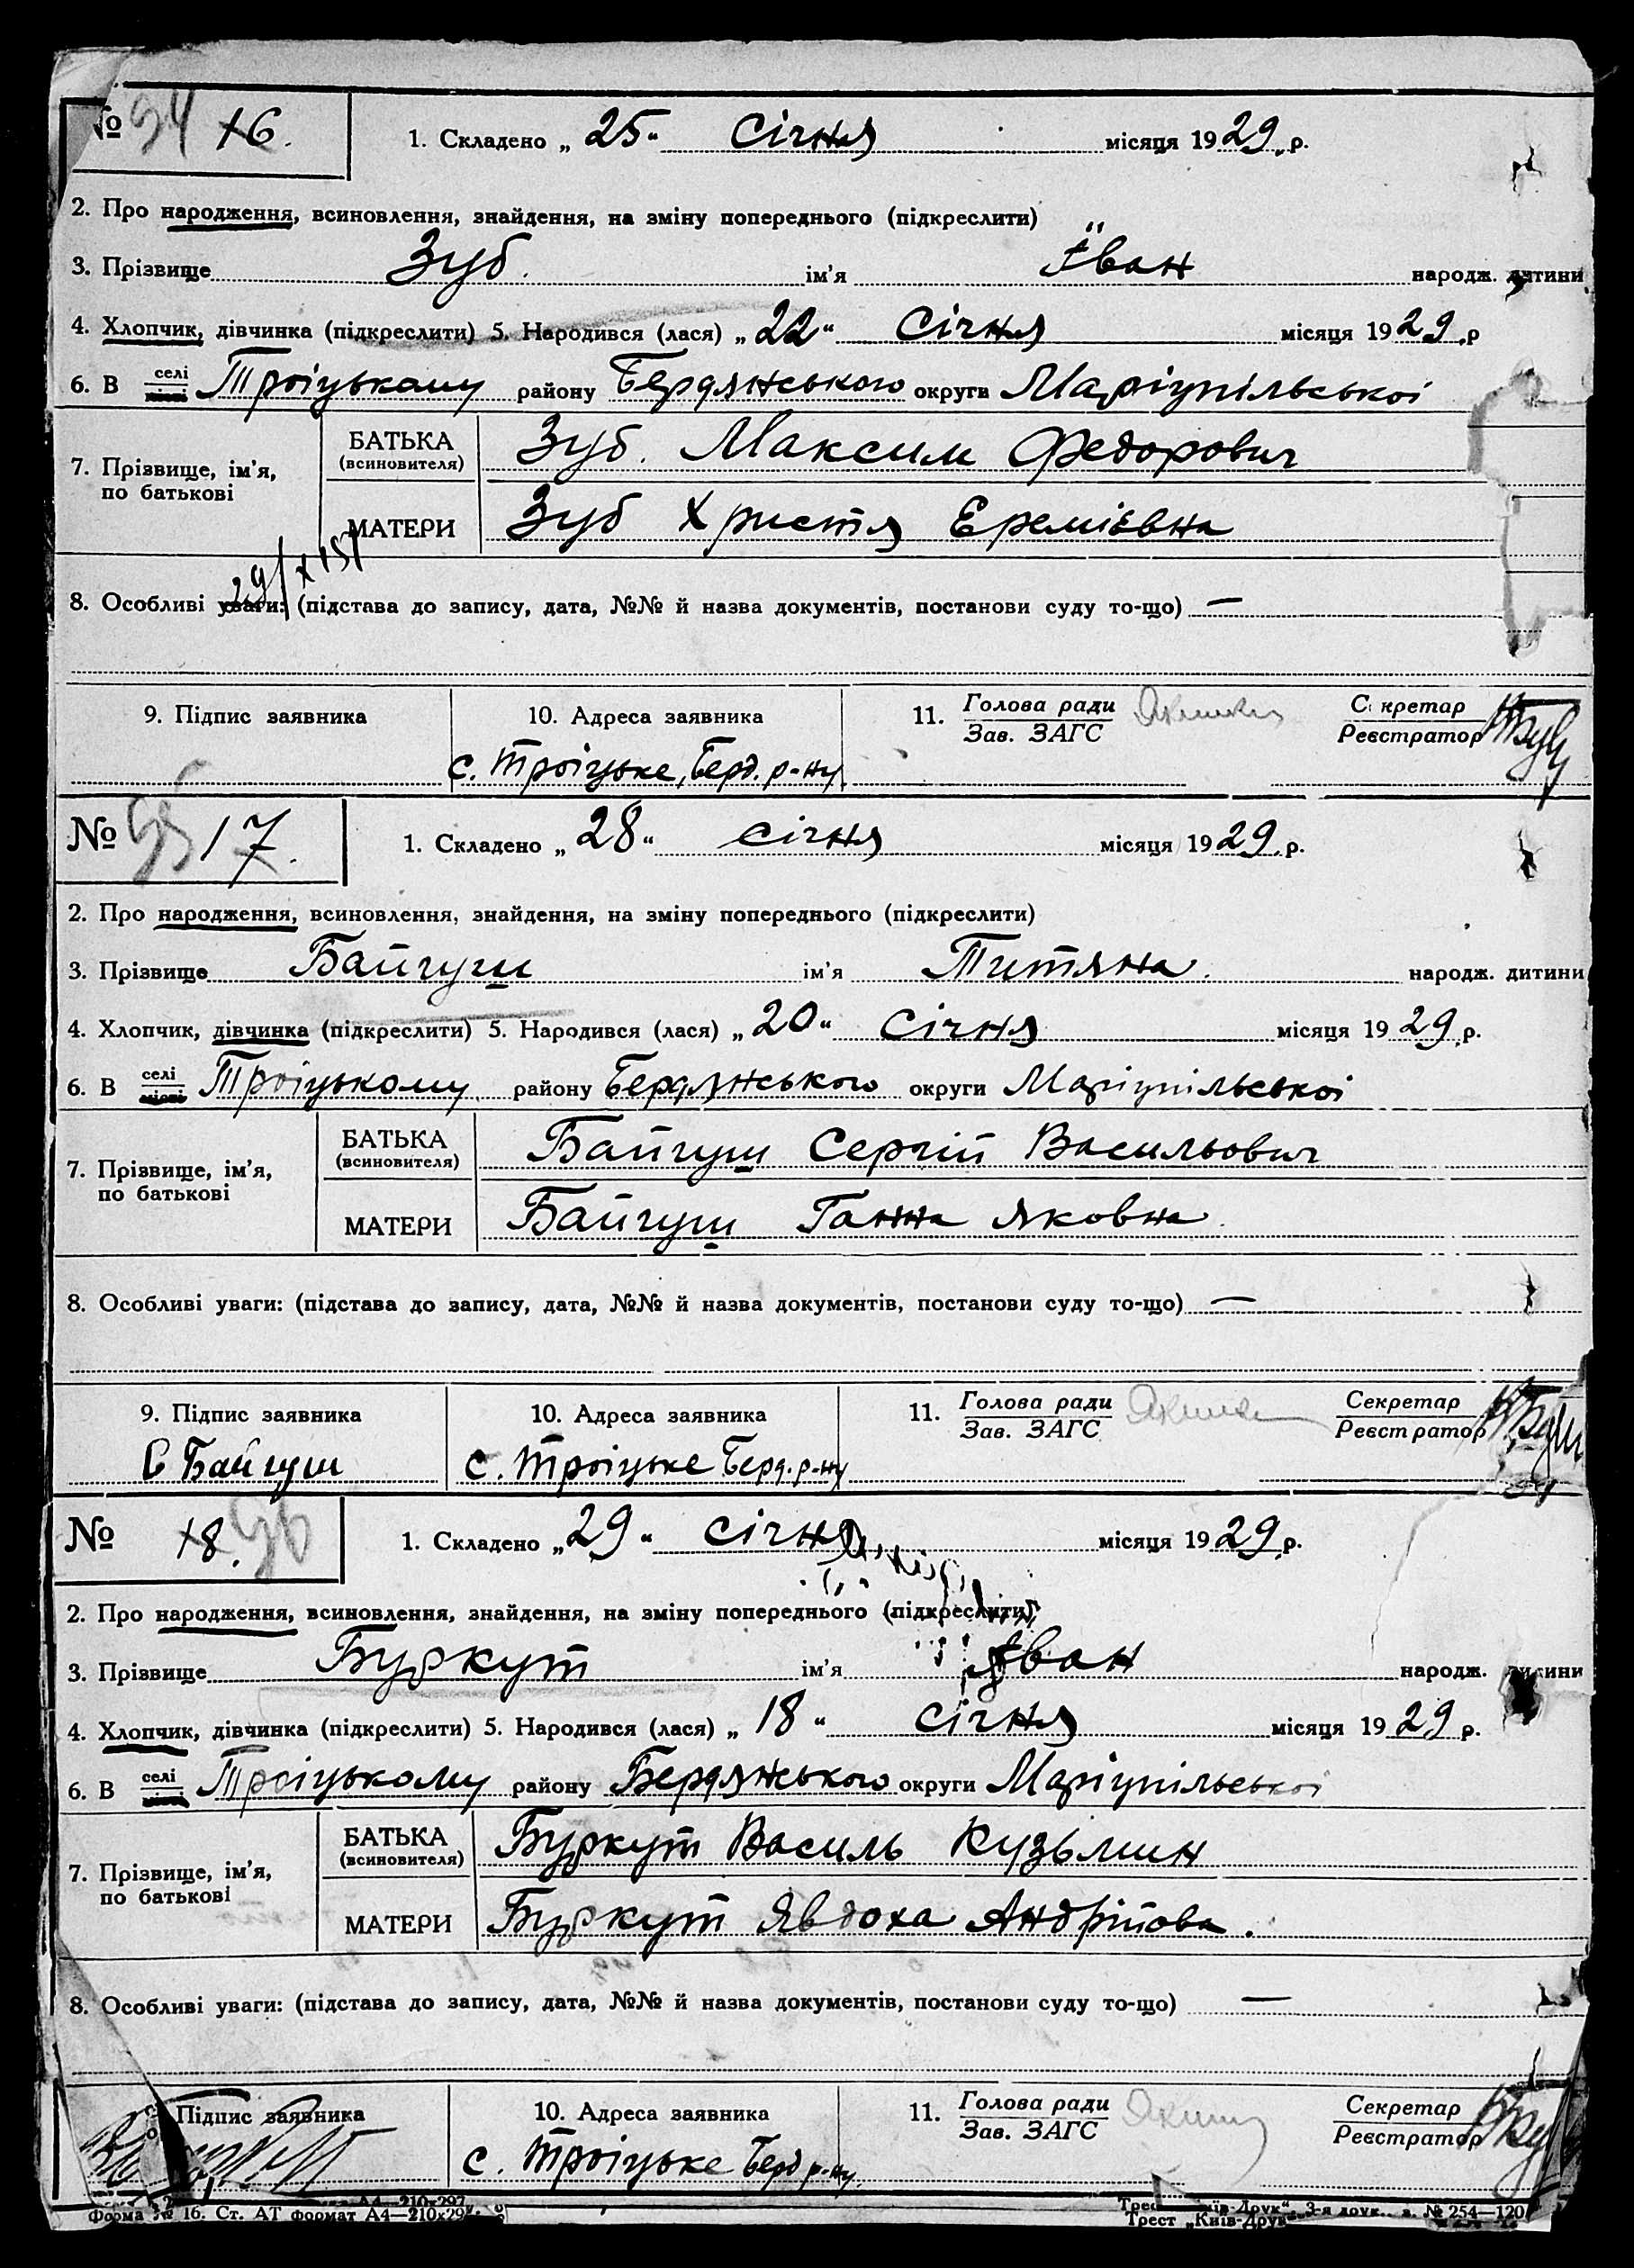 № 94 16. 1. Складено „ 25 “ Січня місяця 1929 р.
2. Про народження, всиновлення, знайдення, на зміну попереднього (підкреслити)
3. Прізвище Зуб. ім’я Іван народж. дитини
4. Хлопчик, дівчинка (підкреслити) 5. Народився (лася) „ 22 “ Січня місяця 1929 р
6. В селі місті Троіцькому району Бердянського округи Маріупільськоі
7. Прізвище, ім’я, по батькові БАТЬКА (всиновителя) Зуб. Максим Федорович
МАТЕРИ Зуб Христя Ереміевна
29/X 151
8. Особливі уваги: (підстава до запису, дата, №№ й назва документів, постанови суду то-що) —
9. Підпис заявника 10. Адреса заявника 11. Голова ради Зав. ЗАГС Секретар Реєстратор
с. Троіцьке, Берд. р-ну
№ 95 17. 1. Складено „ 28 “ січня місяця 1929 р.
2. Про народження, всиновлення, знайдення, на зміну попереднього (підкреслити)
3. Прізвище Байгуш ім’я Титяна. народж. дитини
4. Хлопчик, дівчинка (підкреслити) 5. Народився (лася) „ 20 “ Січня місяця 1929 р.
6. В селі місті Троіцькому району Бердянського округи Маріупільськоі
7. Прізвище, ім’я, по батькові БАТЬКА (всиновителя) Байгуш Сергій Васильович
МАТЕРИ Байгуш Ганна Яковна.
8. Особливі уваги: (підстава до запису, дата, №№ й назва документів, постанови суду то-що) —
9. Підпис заявника 10. Адреса заявника 11. Голова ради Зав. ЗАГС Секретар Реєстратор
С Байгуш с. Троіцьке Берд. р-ну
№ 18. 96 1. Складено „ 29 “ січня місяця 1929 р.
2. Про народження, всиновлення, знайдення, на зміну попереднього (підкреслити)
3. Прізвище Буркут ім’я Іван народж. дитини
4. Хлопчик, дівчинка (підкреслити) 5. Народився (лася) „ 18 “ січня місяця 1929 р.
6. В селі місті Троіцькому району Бердянського округи Маріупільськоі
7. Прізвище, ім’я, по батькові БАТЬКА (всиновителя) Буркут Василь Кузьмин
МАТЕРИ Буркут Явдоха Андрійова.
8. Особливі уваги: (підстава до запису, дата, №№ й назва документів, постанови суду то-що) —
Підпис заявника 10. Адреса заявника 11. Голова ради Зав. ЗАГС Секретар Реєстратор
с. Троіцьке Берд р-ну.
Форма № 16. Ст. АТ формат А4—210х297 Трест „Київ-Друк“ 3-я друк. з. № 254—120